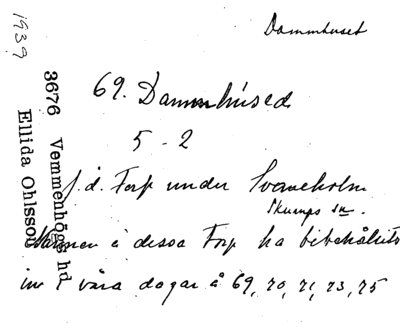 Dammhuset
1939
3676 Vemmenhögs hd
Ellida Ohlsson
69. Dammhused
5-2
f.d. Torp under Svaneholm
Skurups sn.
Namnen å dessa Torp ha bibehållits
in i våra dagar å 69, 70, 71, 73, 75